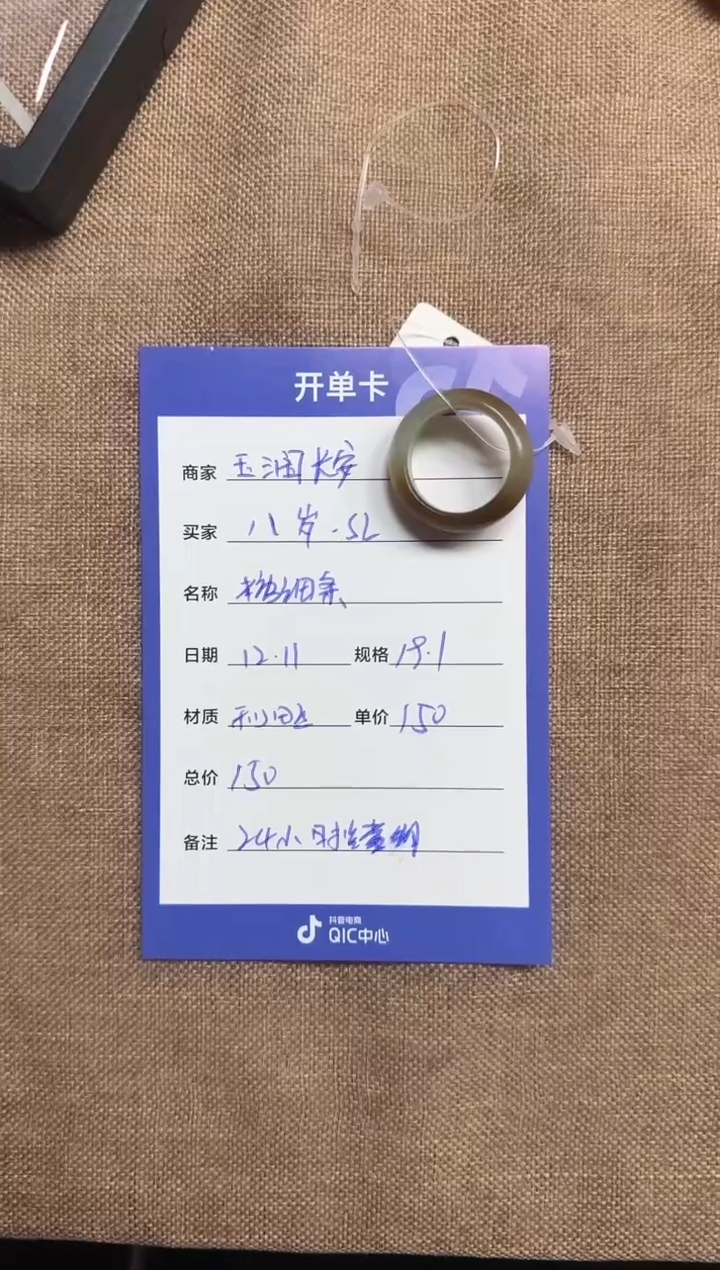 开单卡
商家 玉润长安
买家 八岁.SL
名称
日期 12.11 规格 19.1
材质 和田玉 单价 150
总价 150
备注 24小时
抖音电商
QIC中心